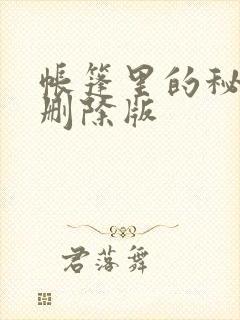 帐篷里的秘
删除版
君落舞